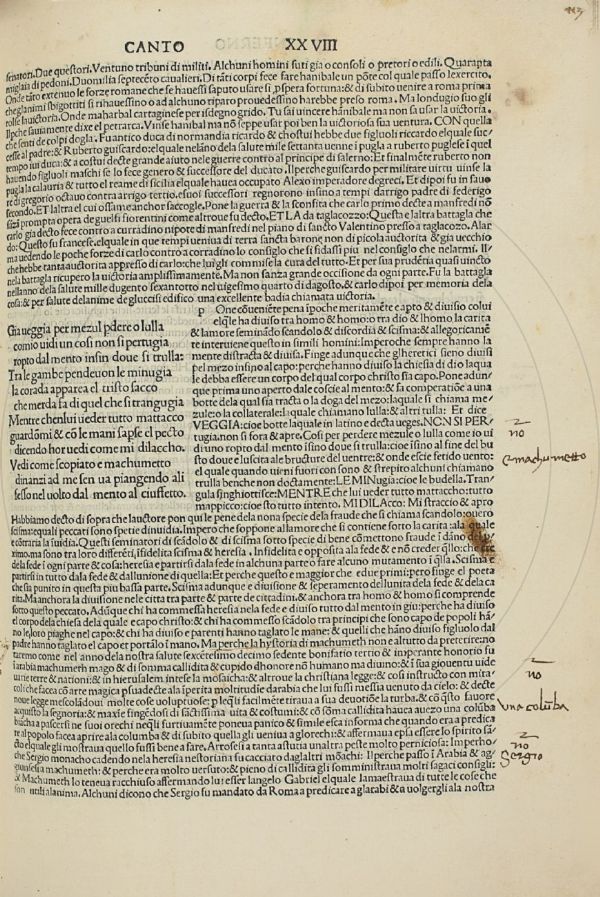 CANTO XXVIII
senatori. Due questori. Ventuno tribuni di militi. Alchuni homini futi gia o consoli o pretori o edili. Quaranta
miglaia di pedoni. Duomilia septecēto caualieri. Di tāti corpi fece fare hanibale un pōte col quale passo lexercito.
Onde tāto extenuo le forze romane che se hauessi saputo usare sí ꝓspera fortuna: & di subito uenire a roma prima
che glanimi sbigottiti si rihauessino o ad alchuno riparo prouedessino harebbe preso roma. Ma londugio suo gli
tolse la uictoria. Onde maharbal cartaginese per isdegno grido. Tu sai uincere hanibale ma non sa usar la uictoria.
Ilche sauiamente dixe el petrarca. Vinse hanibal ma nō seppe usar poi ben la uictoriosa sua uentura. CON quella
che sentí de colpi dogla. Fu antico duca di normandia ricardo & chostui hebbe due figluoli riccardo elquale suc-
cesse al padre: & Ruberto guiscardo: elquale nelāno della salute mille settanta uenne i pugla a ruberto puglese i quel
tempo iui duca: & a costui decte grande aiuto nele guerre contro al principe di salerno: Et finalmēte ruberto non
hauendo figluoli maschi se lo fece genero & successore del ducato. Ilperche guiscardo per militare uirtu uinse la
pugla la calauria & tutto el reame di sicilia elquale hauea occupato Alexo imperadore degreci. Et dipoi fu in fauo
re di gregorio octauo contra arrigo tertio. esuoi successori regnorono insino a tempi darrigo padre di federigo
secondo. ET laltra el cui ossame anchor saccogle. Pone la guerra & la sconfita che carlo primo decte a manfredi nō
sāza prompta opera de guelfi fiorentini come altroue fu decto. ET LA da taglacozzo: Questa e laltra battagla che
carlo gia decto fece contro a curradino nipote di manfredi nel piano di sancto Valentino presso a taglacozo. Alar
do: Questo fu francese. elquale in que tempi ueniua di terra sancta barone non di picola auctorita & gia uecchio
ma uedendo le poche forze di carlo contro a corradino lo consiglo che si fidassi piu nel consiglo che nelarmi. Il-
che hebbe tanta auctorita appresso di carlo che luigli commisse la cura del tutto. Et per sua prudētia quasi uincto
nella battagla ricupero la uictoria amplissimamente. Ma non sanza grande occisione da ogni parte. Fu la battagla
nellanno della salute mille dugento sexantotto nel uigesimo quarto di dagosto. & carlo dipoi per memoria desa
cosa: & per salute delanime de gluccisi edifico una excellente badia chiamata uictoria.
Gia ueggia per mezul pdere o lulla
comio uidi un cosi non si pertugia
ropto dal mento insin doue si trulla:
Tra le gambe pendeuon le minugia
la corada apparea el tristo sacco
che merda fa di quel che si trangugia
Mentre chen lui ueder tutto mattacco
guardōmi & cō le mani sapse el pecto
dicendo hor uedi come mi dilaccho.
Vedi come scopiato e machumetto
dinanzi ad me sen ua piangendo ali
fesso nel uolto dal mento al ciuffetto.
p One cōueniēre pena ipoche meritamēte e apto & diuiso colui
elq̄le ha diuiso tra homo & homo: o tra dio & lhomo la carita
& lamore seminādo scandolo & discordia & scisma: & allegoricamē
te interuiene questo in simili homini: Imperoche sempre hanno la
mente distracta & diuisa. Finge adunque che glheretici sieno diuisi
pel mezo insino al capo: perche hanno diuiso la chiesa di dio laqua
le debba essere un corpo del qual corpo christo sia capo. Pone adun
que prima uno aperto dale coscie al mento: & fa comperatiōe a una
botte dela qual sia tracta o la doga del mezo: laquale si chiama me
zule: o la collaterale: laquale chiamano lulla: & altri tulla: Et dice
VEGGIA: cioe botte laquale in latino e decta ueges. NON SI PER-
tugia. non si fora & apre. Cosi per perdere mezule o lulla come io ui
di uno ropto dal mento insino doue si trulla: cioe insino al fine del bu
sto doue e luscita ale bructure del uentre: & onde escie fetido uento:
el quale quando uieni fuori con sono & strepito alchuni chiamano
trulla benche non doctamente: LE MINugia: cioe le budella. Tran-
gula singhiottisce: MENTRE che lui ueder tutto mattaccho: tutto
mappicco: cioe sto tutto intento. MI DILAcco: Mi straccio & apro
Habbiamo decto di sopra che lauctore pon qui le pene dela nona specie dela fraude che si chiama scandolo: ouero
scisma: equali peccati sono spetie dinuidia. Impero che soppone allamore che si contiene sotto la carita ala quale
e cōtraria la inuidia. Questi seminatori di scādolo & di scisma sotto specie di bene cōmettono fraude
ximo. ma sono tra loro differēti, ifidelita scisma & heresia. Infidelita e opposita ala fede & e nō creder q̄llo: che
dela fede i ogni parte & cosa: heresia e partirsi dala fede in alchuna parte o fare alcuno mutamento i q̄lla. Scisma e
partirsi in tutto dala fede & dallunione di quella: Et perche questo e maggior che e due primi: pero finge el poeta
che sia punito in questa piu bassa parte. Scisma adunque e diuisione & seperatione dellunita dela fede & dela ca
rita. Ma anchora la diuisione nele citta tra parte & parte de cittadini. & anchora tra homo & homo si comprende
sotto questo peccato. Adūque chi ha commessa heresia nela fede e diuiso tutto dal mento in giu: perche ha diuiso
el corpo dela chiesa dela quale e capo christo: & chi ha commesso scādolo tra principi che sono capo de popoli hā-
no le loro piaghe nel capo: & chi ha diuiso e parenti hanno taglato le mane: & quelli che hāno diuiso figluolo dal
padre hanno taglato el capo et portalo i mano. Ma perche la hystoria di machumeth non e altuto da preterire: no
teremo come nel anno dela nostra salute sexcētesimo decimo sendo bonifatio tertio et imperante honorio fu
i arabia machumeth mago & di somma callidita & cupido dhonore nō humano ma diuino: & i sua giouentu uide
uarie terre & nationi: & in hierusalem intese la mosaicha: & altroue la christiana legge: & cosi instructo con mira
coli che facea cō arte magica psuadecte ala īperita moltitudīe darabia che lui fussi messo uenuto da cielo: & decte
noue legge mescolādoui molte cose uoluptuose: p lequali facilmēte tiraua a sua deuotiōe la turba. & cō q̄sto fauore
aquisto la segnoria: & maxīe fingēdosi di sāctissima uita & costumi: & cō sōma callidita hauca auezo una colūba
bucha a pascersi ne suoi orechi nequali furtiuamēte poneua panico & simile esca informa che quando era a predica
re al popolo facea aprire ala columba & di subito quella gli ueniua a glorechi: & affermaua epsa essere lo spirito sā-
cto elquale gli mostraua quello fussi bene a fare. Arrosesi a tanta astutia unaltra peste molto perniciosa: Imperho-
che Sergio monacho cadendo nela heresia nestoriana fu cacciato daglaltri mōachi: Ilperche passo i Arabia & ag-
giunsesi a machumeth: & perche era molto uersuto: & pieno di callidita gli somministraua molti sagaci consigli:
& Machumeth lo teneua racchiuso affermando lui esser langelo Gabriel elquale lamaestraua di tutte le cose che
son utili alanima. Alchuni dicono che Sergio fu mandato da Roma a predicare a glarabi: & a uolgergli ala nostra
no
e machumetto
no
una coluba
no
Sergio